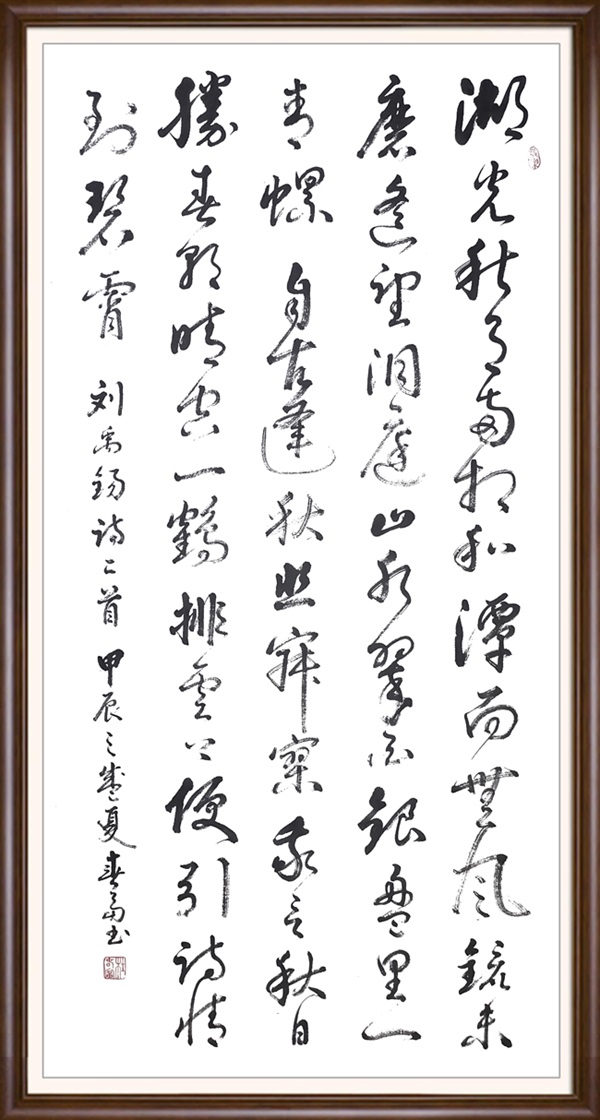 湖光秋月两相和潭面無风鏡未
磨遥望洞庭山水翠色銀盘里一
青螺自古逢秋悲寂寥我言秋日
勝春朝晴空一鶴排雲上便引诗情
到碧霄 刘禹錫诗二首 甲辰之盛夏春富书